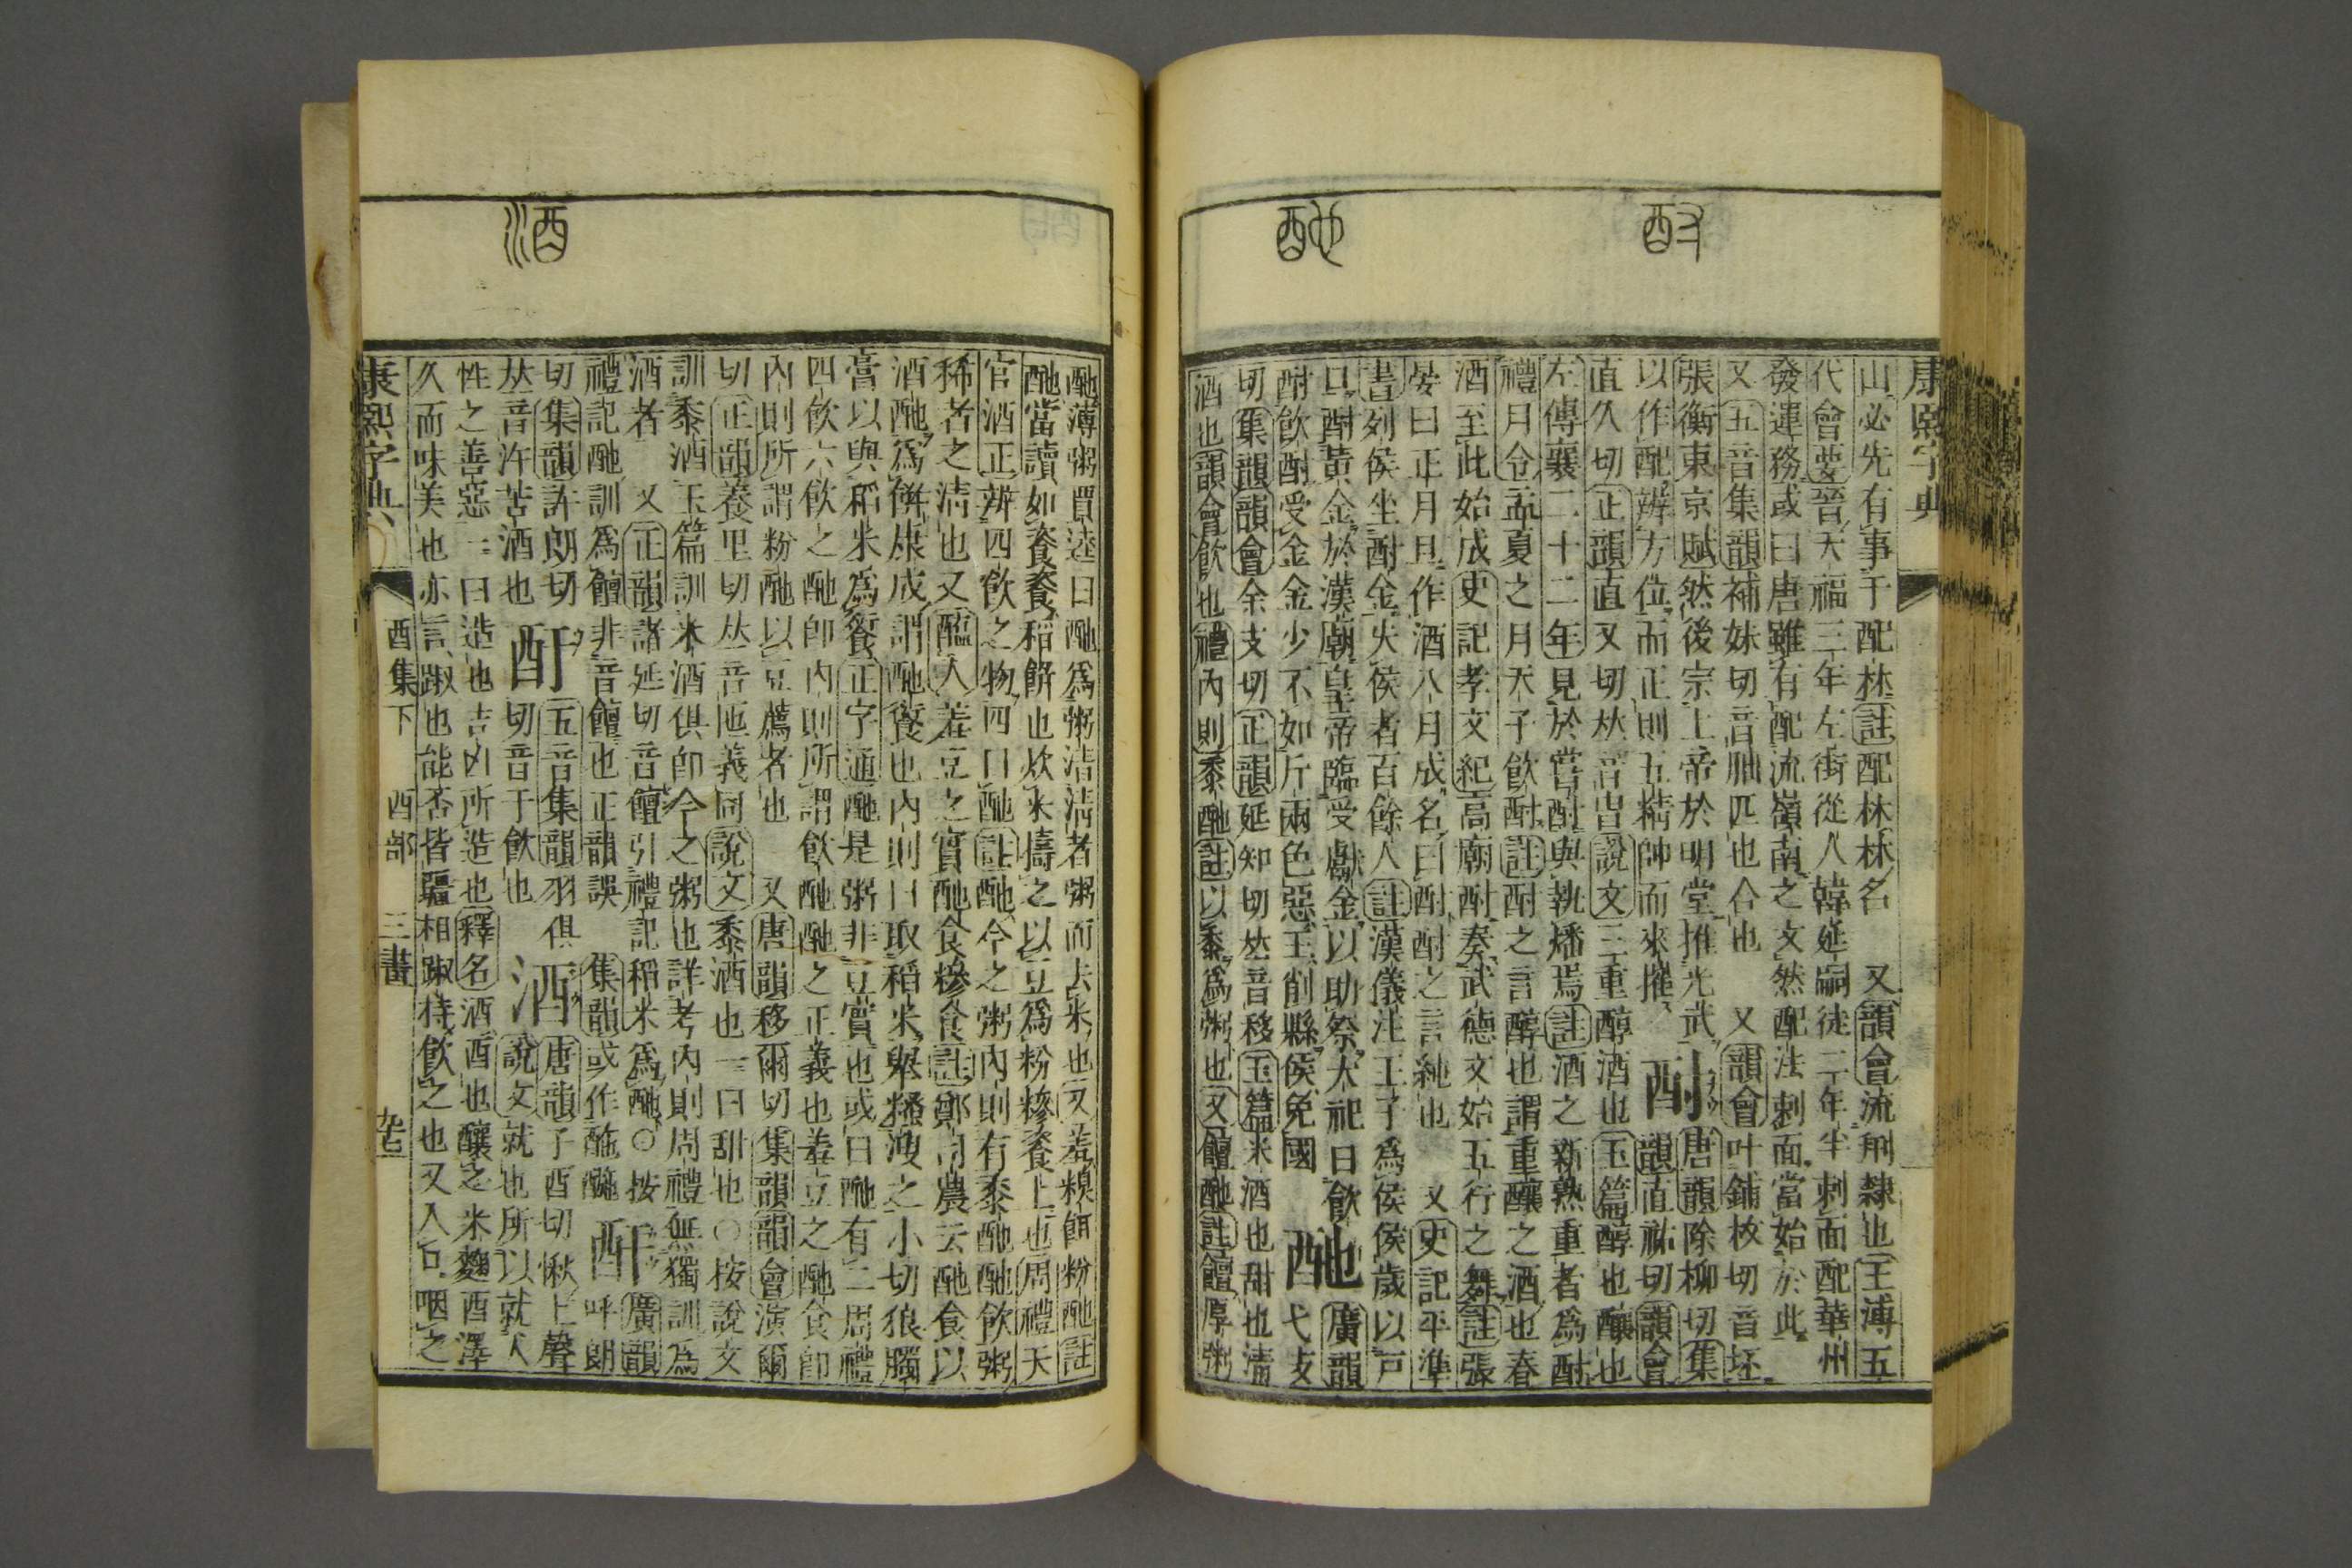 酎
酏
康熙字典
山必先有事于配林註配林林名 又韻會流𠛬隸也王溥五
代會要晉天福三年左街從人韓延嗣徒二年半刺面配華州
發運務或曰唐雖有配流嶺南之文然配法刺面當始於此
又五音集韻補妹切音𦙁匹也合也 又韻會叶鋪枚切音坯
張衡東京賦然後宗上帝於明堂推光武
以作配辨方位而正則五精帥而來摧 酎 唐韻除柳切集
韻直祐切韻會
直久切正韻直又切𠀤音胄說文三重醇酒也玉篇醇也釀也
左傳襄二十二年見於嘗酎與執燔焉註酒之新熟重者爲酎
禮月令孟夏之月天子飮酎註酎之言醇也謂重釀之酒也春
酒至此始成史記孝文紀高廟酎奏武德文始五行之舞註張
晏曰正月旦作酒八月成名曰酎酎之言純也 又史記平準
書列侯坐酎金失侯者百餘人註漢儀注王子爲侯侯歲以戸
口酎黃金於漢廟皇帝臨受獻金以助祭大祀日飮
酎飮酎受金金少不如斤兩色惡王削縣侯免國 酏 廣韻
弋支
切集韻韻會余支切正韻延知切𠀤音移玉篇米酒也甜也淸
酒也韻會飮也禮內則黍酏註以黍爲粥也又饘酏註饘厚粥
酒
酏薄粥賈逵曰酏爲粥淸淸者粥而去米也又羞糗餌粉酏註
酏當讀如餈餈稻餠也炊米擣之以豆爲粉糝餈上也周禮天
官酒正辨四飮之物四曰酏註酏今之粥內則有黍酏酏飮粥
稀者之淸也又醢人羞豆之實酏食糝食註鄭司農云酏食以
酒酏爲餠㡣成謂酏餰也內則曰取稻米舉糔溲之小切狼臅
膏以與稻米爲餰正字通酏是粥非豆實也或曰酏有二周禮
四飮六飮之酏卽內則所謂飮酏酏之正義也羞豆之酏食卽
內則所謂粉酏以豆薦者也 又唐韻移爾切集韻韻會演爾
切正韻養里切𠀤音迆義同說文黍酒也一曰甜也○按說文
訓黍酒玉篇訓米酒俱卽今之粥也詳考內則周禮無獨訓爲
酒者 又正韻諸延切音饘引禮記稻米爲酏○按
禮記酏訓爲饘非音饘也正韻誤 集韻或作酶䤄 酐 廣韻
呼朗
切集韻許朗切
𠀤音汻苦酒也 酑 五音集韻羽俱
切音于飮也 酒 唐韻子酉切愀上聲
說文就也所以就人
性之善惡一曰造也吉凶所造也釋名酒酉也釀之米麴酉澤
久而味美也亦言踧也能否皆彊相踧持飮之也又入口咽之
康熙字典
酉集下 酉部 三畫